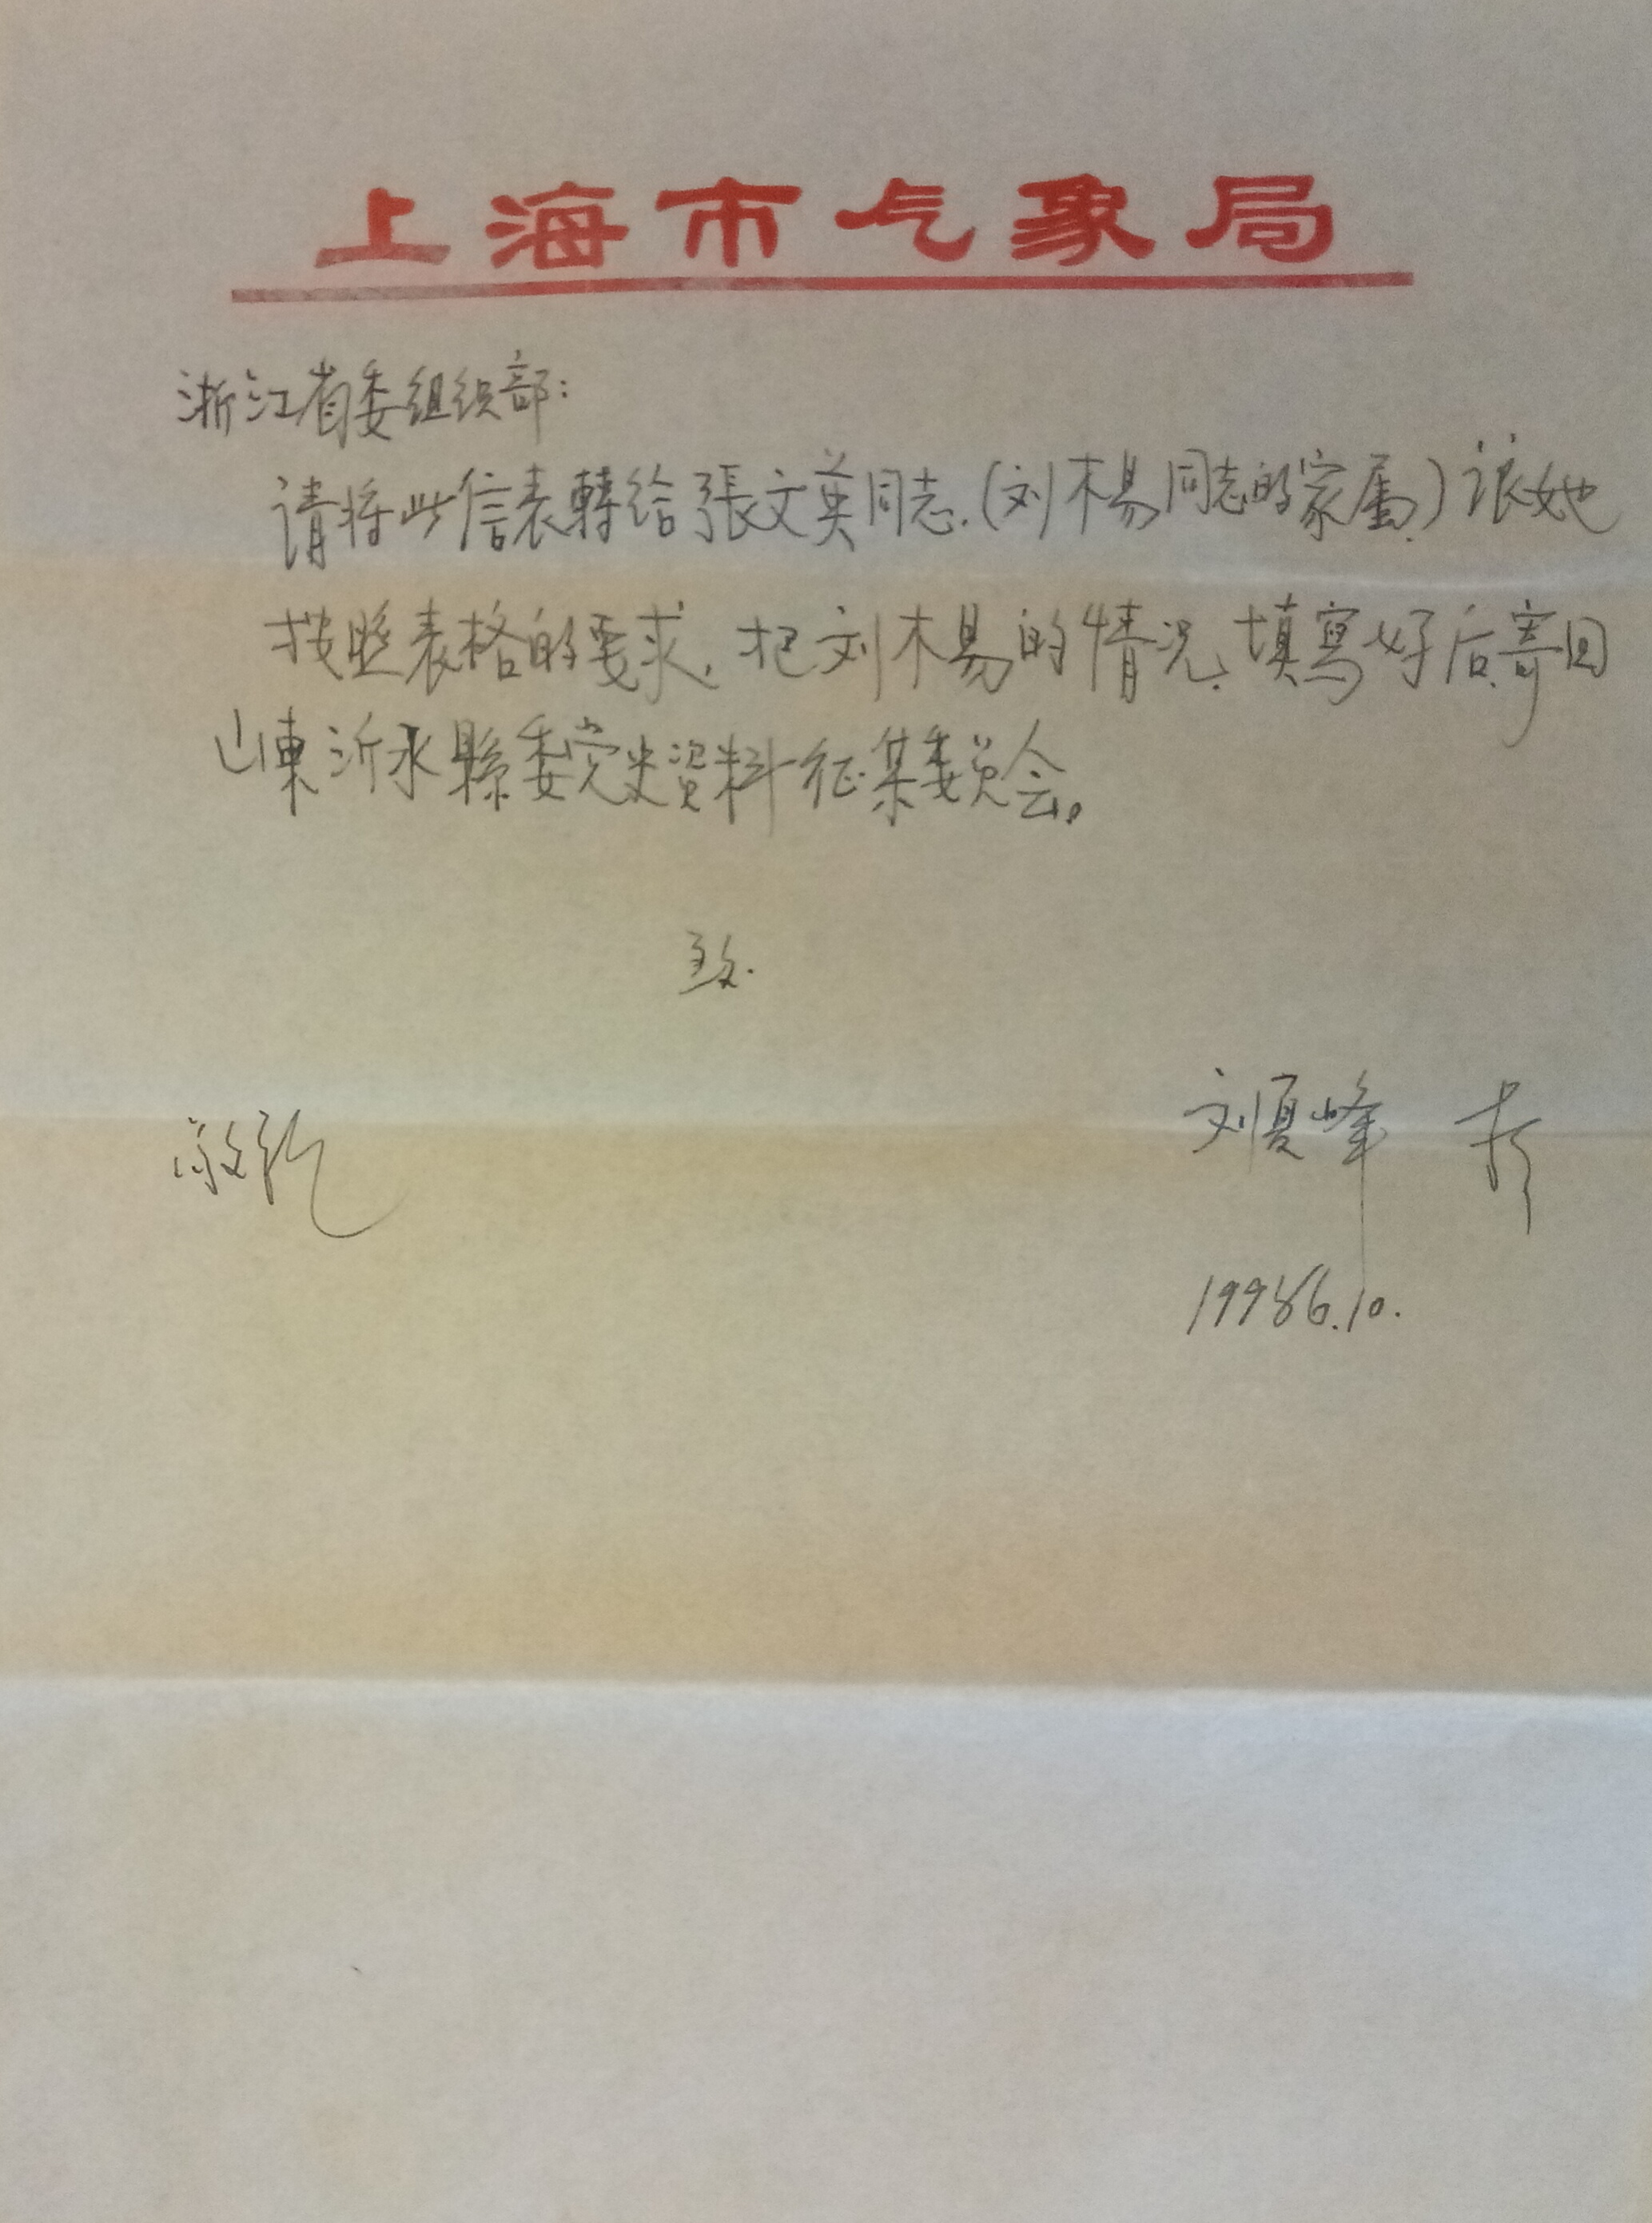 上海市气象局
浙江省委组织部：
请将此信表轉给張文英同志.(刘木易同志的家属.)让她
按照表格的要求，把刘木易的情况、填寫好后寄回
山東沂水縣委党史資料征集委员会。
致.
刘夏峰
敬礼
19986.10.